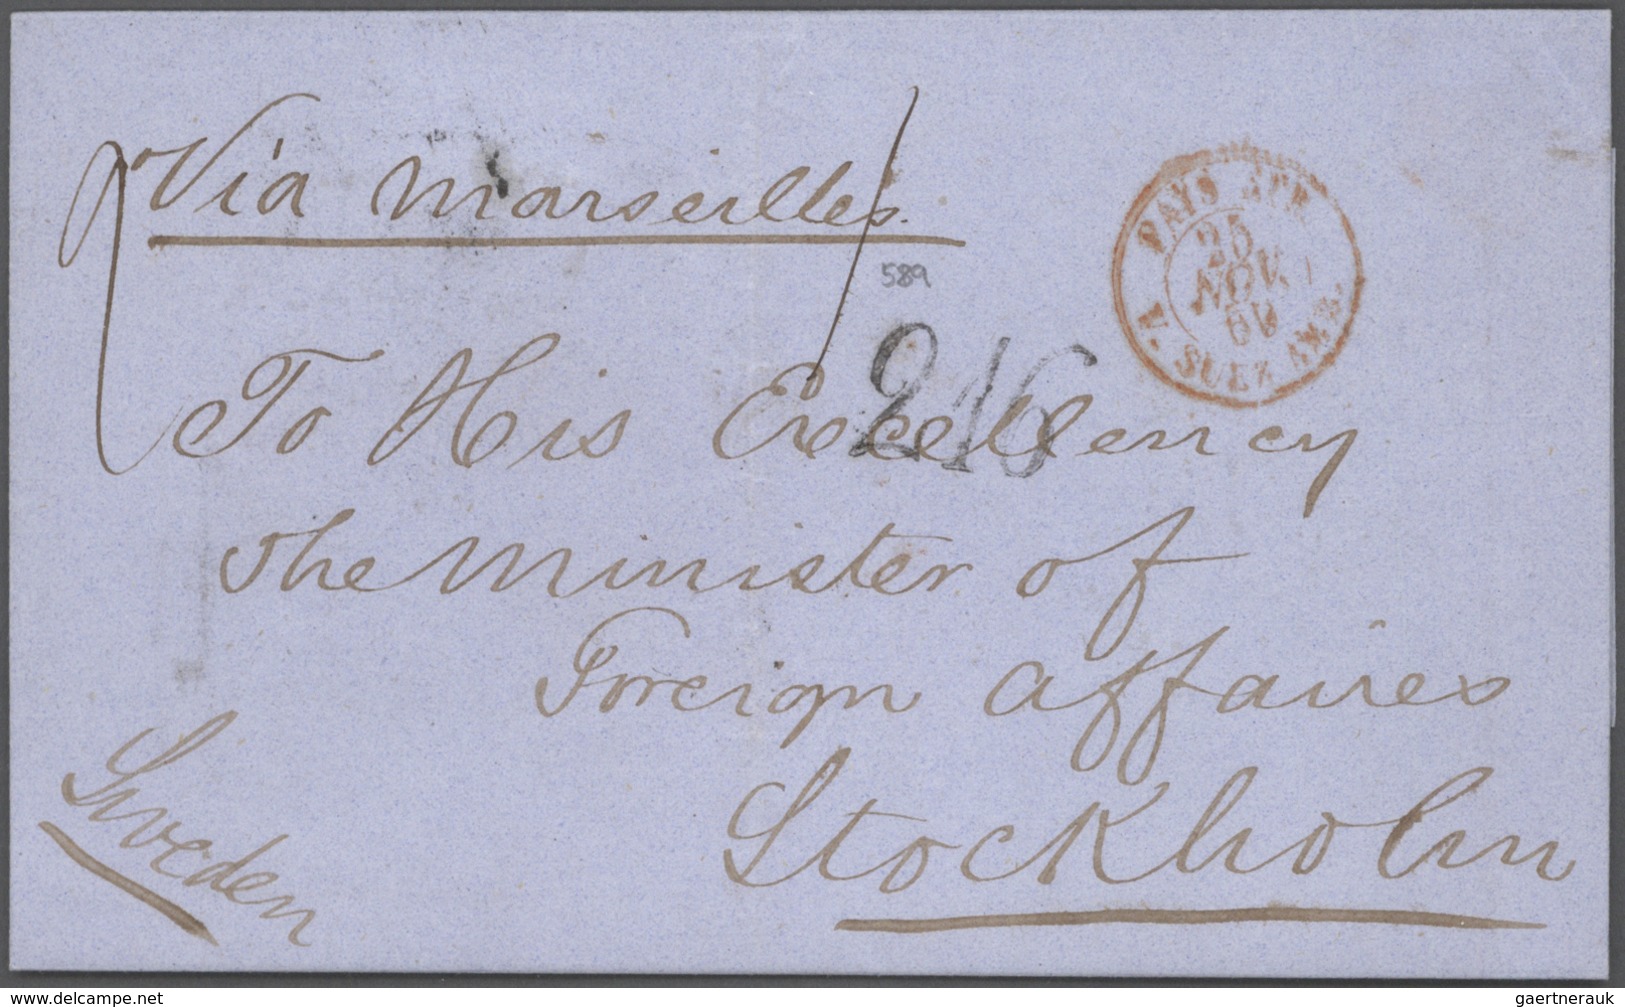 Via Marseilles.
PAYS ETR.
25
NOV.
60
V. SUEZ AMB.
589
2/6
To His Excellency
the Minister of
Foreign Affaires
Stockholm
Sweden
www.delcampe.net
gaertnerauk